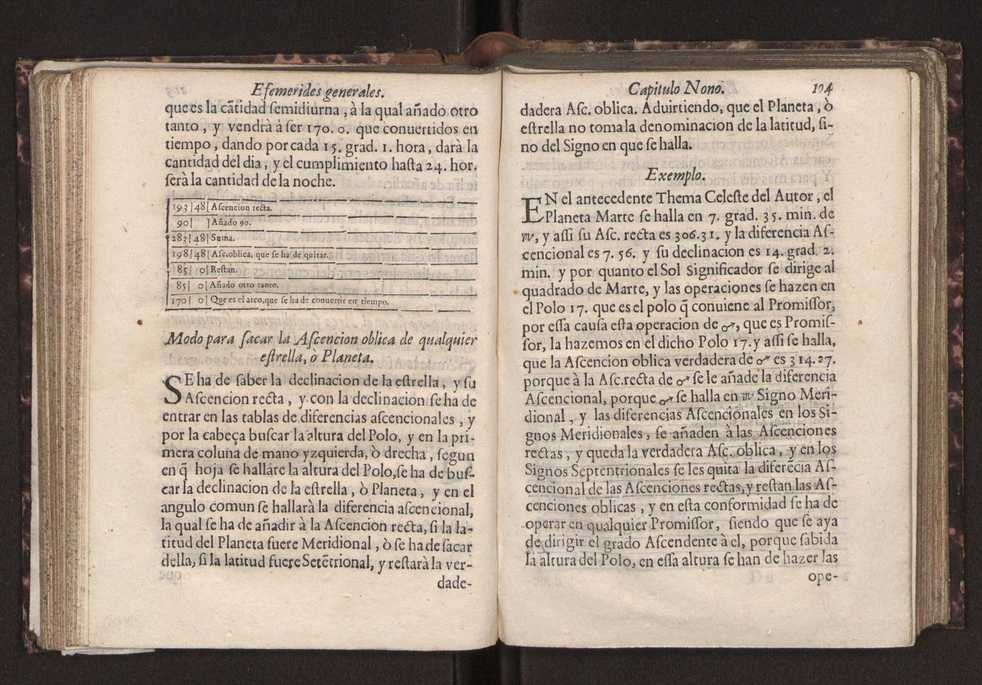 Efemerides generales.
que es la cãtidad semidiurna, à la qual añado otro
tanto, y vendrà à ser 170. 0. que conuertidos en
tiempo, dando por cada 15. grad. 1. hora, darà la
cantidad del dia, y el cumplimiento hasta 24. hor.
serà la cantidad de la noche.
193 | 48 | Ascencion recta.
90 | | Añado 90.
283 | 48 | Suma.
198 | 48 | Asc.oblica, que se ha de quitar.
85 | 0 | Restan.
85 | 0 | Añado otro tanto.
170 | 0 | Que es el arco, que se ha de conuertir en tiempo.
Modo para sacar la Ascencion oblica de qualquier
estrella, ò Planeta.
SE ha de saber la declinacion de la estrella, y su
Ascencion recta, y con la declinacion se ha de
entrar en las tablas de diferencias ascencionales, y
por la cabeça buscar la altura del Polo, y en la pri-
mera coluna de mano yzquierda, ò drecha, segun
en q̃ hoja se hallàre la altura del Polo, se ha de bus-
car la declinacion de la estrella, ò Planeta, y en el
angulo comun se hallarà la diferencia ascencional,
la qual se ha de añadir à la Ascencion recta, si la la-
titud del Planeta fuere Meridional, ò se ha de sacar
della, si la latitud fuere Setẽtrional, y restarà la ver-
dade-
Capitulo Nono. 104
dadera Asc. oblica. Aduirtiendo, que el Planeta, ò
estrella no toma la denominacion de la latitud, si-
no del Signo en que se halla.
Exemplo.
EN el antecedente Thema Celeste del Autor, el
Planeta Marte se halla en 7. grad. 35. min. de
♒, y assi su Asc. recta es 306.31. y la diferencia As-
cencional es 7. 56. y su declinacion es 14. grad. 2.
min. y por quanto el Sol Significador se dirige al
quadrado de Marte, y las operaciones se hazen en
el Polo 17. que es el polo q̃ conuiene al Promissor,
por essa causa esta operacion de ♂, que es Promis-
sor, la hazemos en el dicho Polo 17. y assi se halla,
que la Ascencion oblica verdadera de ♂ es 314.27.
porque à la Asc.recta de ♂ se le añade la diferencia
Ascencional, porque ♂ se halla en ♒ Signo Meri-
dional, y las diferencias Ascencionales en los Si-
gnos Meridionales, se añaden à las Ascenciones
rectas, y queda la verdadera Asc. oblica, y en los
Signos Septentrionales se les quita la diferẽcia As-
cencional de las Ascenciones rectas, y restan las As-
cenciones oblicas, y en esta conformidad se ha de
operar en qualquier Promissor, siendo que se aya
de dirigir el grado Ascendente à el, porque sabida
la altura del Polo, en essa altura se han de hazer las
ope-